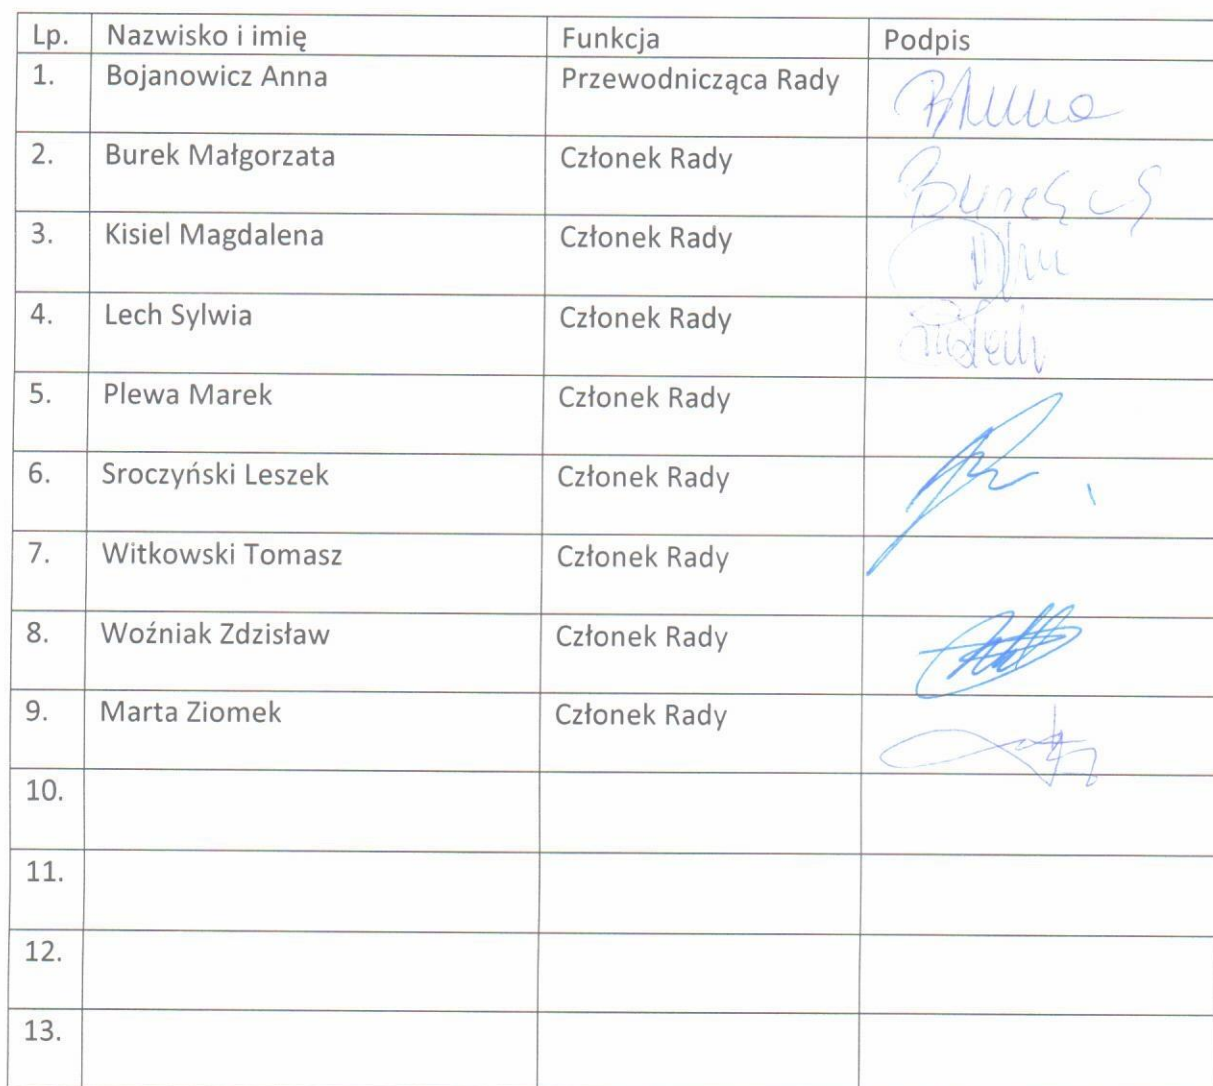 Lp. Nazwisko i imię Funkcja Podpis
1. Bojanowicz Anna Przewodnicząca Rady
2. Burek Małgorzata Członek Rady
3. Kisiel Magdalena Członek Rady
4. Lech Sylwia Członek Rady
5. Plewa Marek Członek Rady
6. Sroczyński Leszek Członek Rady
7. Witkowski Tomasz Członek Rady
8. Woźniak Zdzisław Członek Rady
9. Marta Ziomek Członek Rady
10.
11.
12.
13.